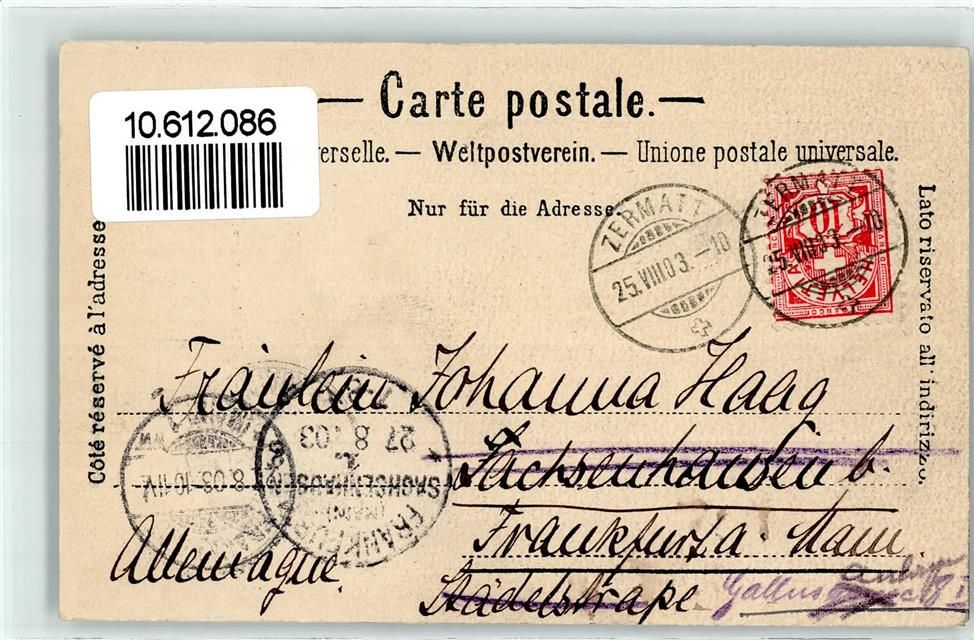 Carte postale.
10.612.086
verselle. — Weltpostverein. — Unione postale universale.
Nur für die Adresse.
Côté réservé à l'adresse
Lato riservato all' indirizzo.
ZERMATT
25.VIII03.-10
ZERMATT
25.VIII03.-10
10
FRANCO
HELVETIA
Fräulein Johanna Haag
Sachsenhausen b.
Frankfurt a. Main
Allemagne.
Städelstraße
FRANKFURT
(MAIN)
SACHSENHAUSEN
1
27 8 03
8.03.10-11V.